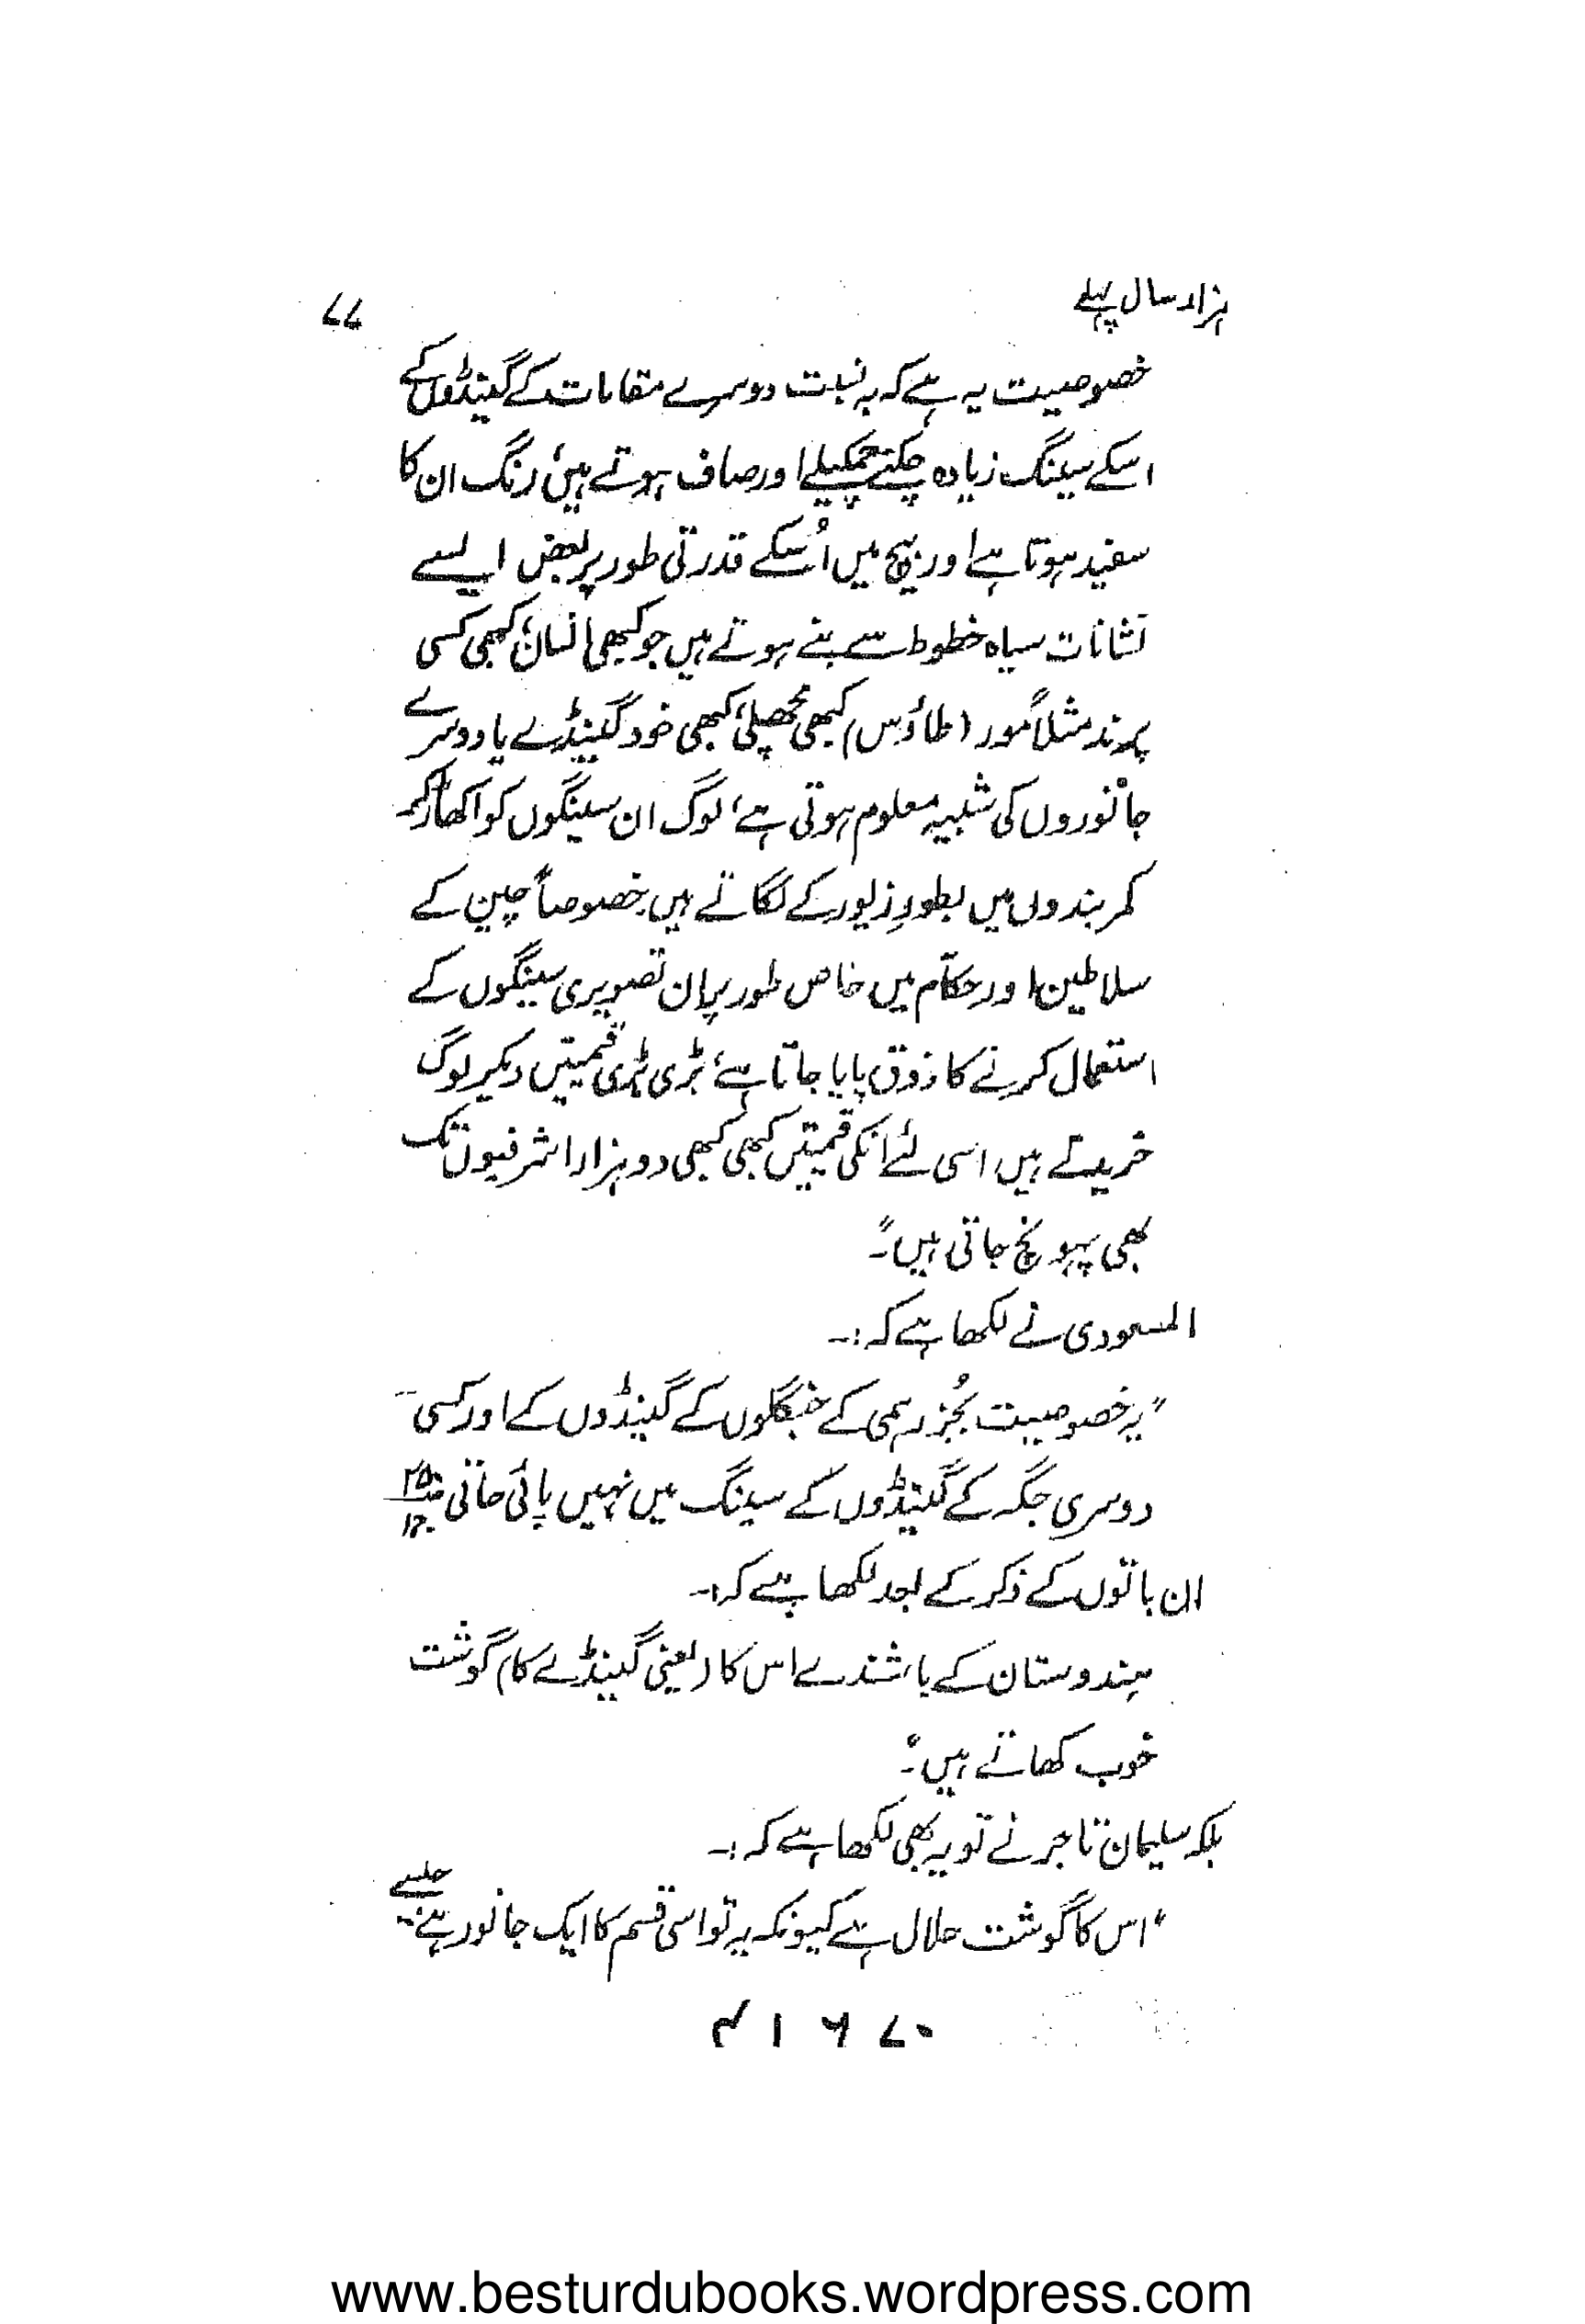 ہزار سال پہلے ۷۷
خصوصیت یہ ہے کہ بہ نسبت دوسرے مقامات کے گینڈوں کے
اسکے سینگ زیادہ چکنے چمکیلے اور صاف ہوتے ہیں، رنگ ان کا
سفید ہوتا ہے اور بیچ میں اُسکے قدرتی طور پر بعض ایسے
نشانات سیاہ خطوط سے بنے ہوتے ہیں جو کبھی انسان، کبھی کسی
پرند مثلاً مور (طاؤس) کبھی مچھلی، کبھی خود گینڈے یا دوسرے
جانوروں کی شبیہ معلوم ہوتی ہے، لوگ ان سینگوں کو اکھاڑ کر
کمر بندوں میں بطورِ زیور کے لگاتے ہیں خصوصاً چین کے
سلاطین اور حکّام میں خاص طور پر ان تصویری سینگوں کے
استعمال کرنے کا ذوق پایا جاتا ہے، بڑی بڑی قیمتیں دیکر لوگ
خریدتے ہیں اسی لئے انکی قیمتیں کبھی کبھی دو ہزار اشرفیوں تک
بھی پہونچ جاتی ہیں"۔
المسعودی نے لکھا ہے کہ:۔
"یہ خصوصیت بُجز رہمی کے جنگلوں کے گینڈوں کے اور کسی
دوسری جگہ کے گینڈوں کے سینگ میں نہیں پائی جاتی
ان باتوں کے ذکر کے بعد لکھا ہے کہ:۔
ہندوستان کے باشندے اس کا (یعنی گینڈے کا) گوشت
خوب کھاتے ہیں"۔
بلکہ سلیمان تاجر نے تو یہ بھی لکھا ہے کہ:۔
"اس کا گوشت حلال ہے کیونکہ یہ تو اسی قسم کا ایک جانور ہے جیسے
www.besturdubooks.wordpress.com